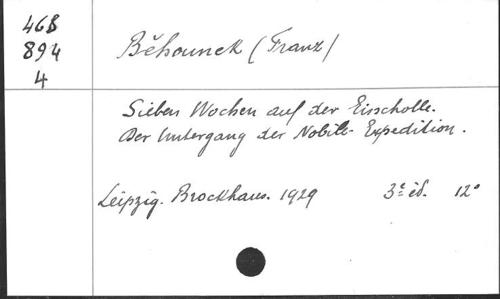 46B
894
4
Běhounek (Franz)
Sieben Wochen auf der Eisscholle.
Der Untergang der Nobile-Expedition.
Leipzig. Brockhaus. 1929 3e éd. 12°